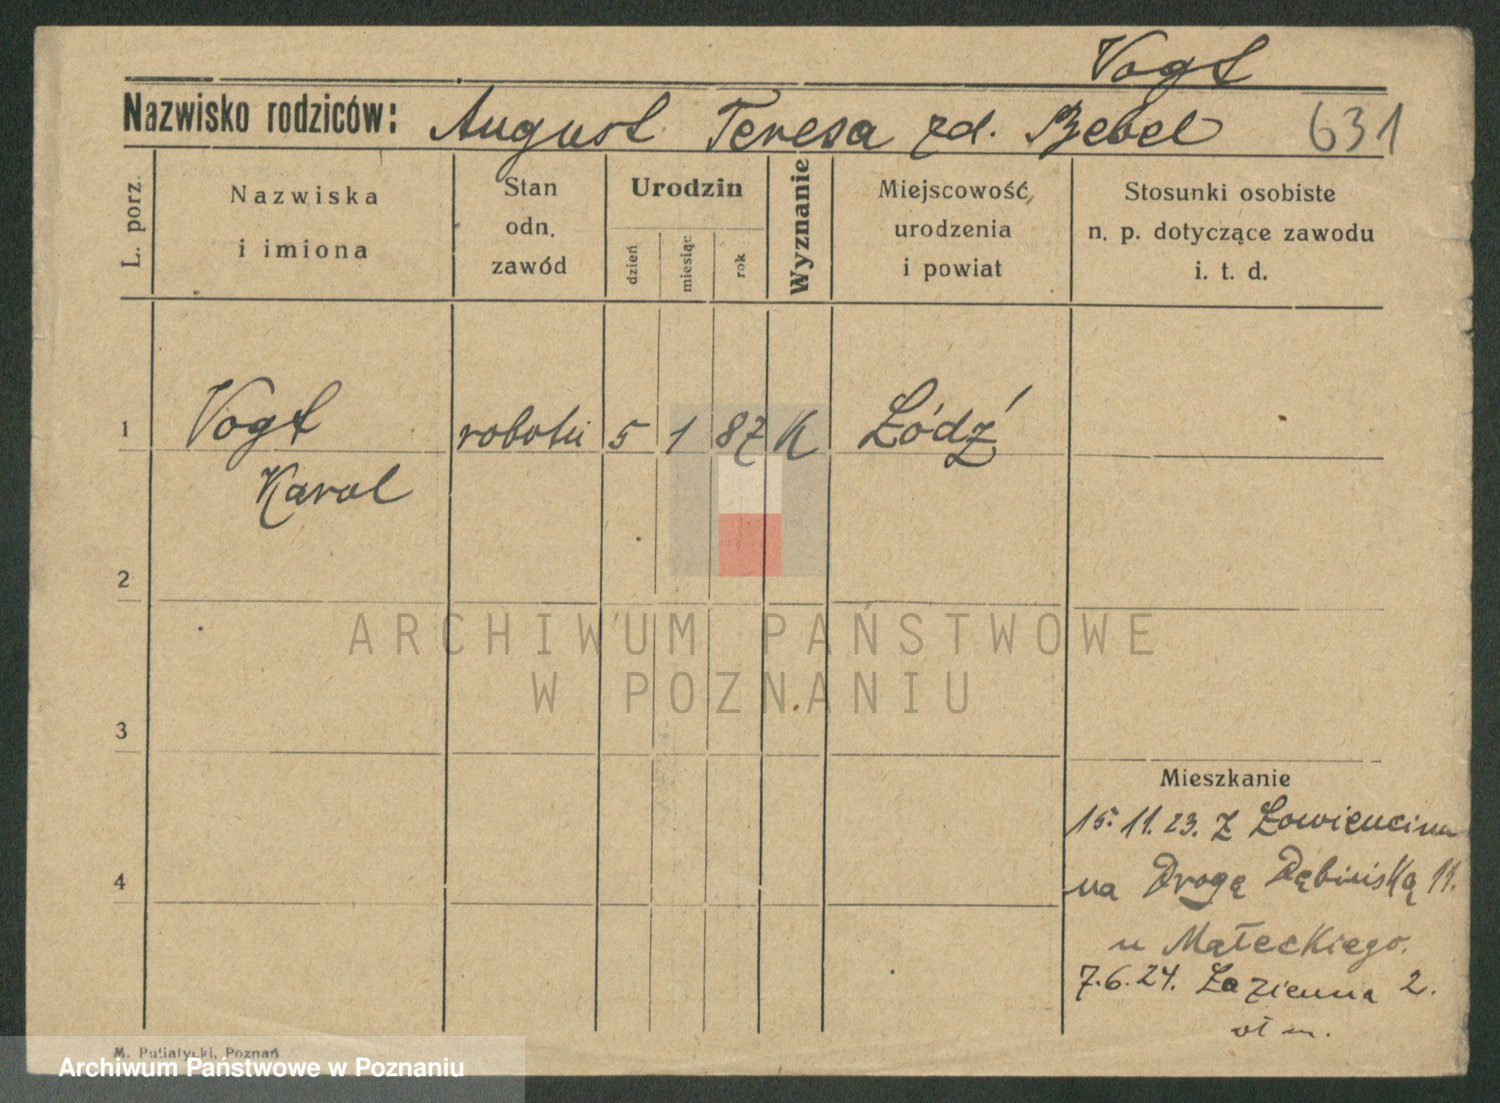 Vogt
Nazwisko rodziców: August Teresa zd. Bebel 631
L. porz.
Nazwiska
i imiona
Stan
odn.
zawód
Urodzin
dzień
miesiąc
rok
Wyznanie
Miejscowość,
urodzenia
i powiat
Stosunki osobiste
n. p. dotyczące zawodu
i. t. d.
1 Vogt robotn 5 1 87 K Łódź
Karol
2
ARCHIWUM PAŃSTWOWE
W POZNANIU
3
Mieszkanie
15. 11. 23. z
4
na Drogę Dębińską 11.
u Małeckiego.
7.6.24. Łazienna 2.
wł m.
M. Putiatycki, Poznań
Archiwum Państwowe w Poznaniu